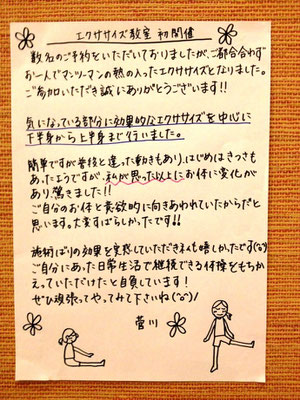 エクササイズ教室 初開催
数名のご予約をいただいておりましたが、ご都合合わず
お一人でマンツーマンの熱の入ったエクササイズとなりました。
ご参加いただき誠にありがとうございます!!
気になっている部分に効果的なエクササイズを中心に
下半身から上半身まで行いました。
簡単ですが普段と違った動きもあり、はじめはきつさも
あったようですが、私が思った以上にお体に変化が
あり、驚きました!!
ご自分のお体と意欲的に向きあわれていたからだと
思います。大変すばらしかったです!!
施術ばりの効果を実感していただき私も嬉しかったです(^^)
ご自分にあった日常生活で継続できる体操をもちか
えっていただけたと自負しています!
ぜひ頑張ってやってみて下さいね(^o^)/
菅川